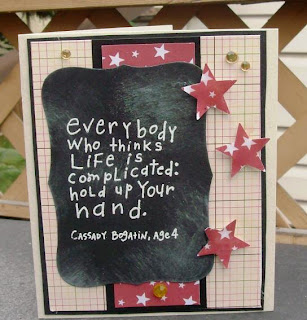 everybody
who thinks
Life is
complicated:
hold up your
hand.
Cassady Bogatin, age 4